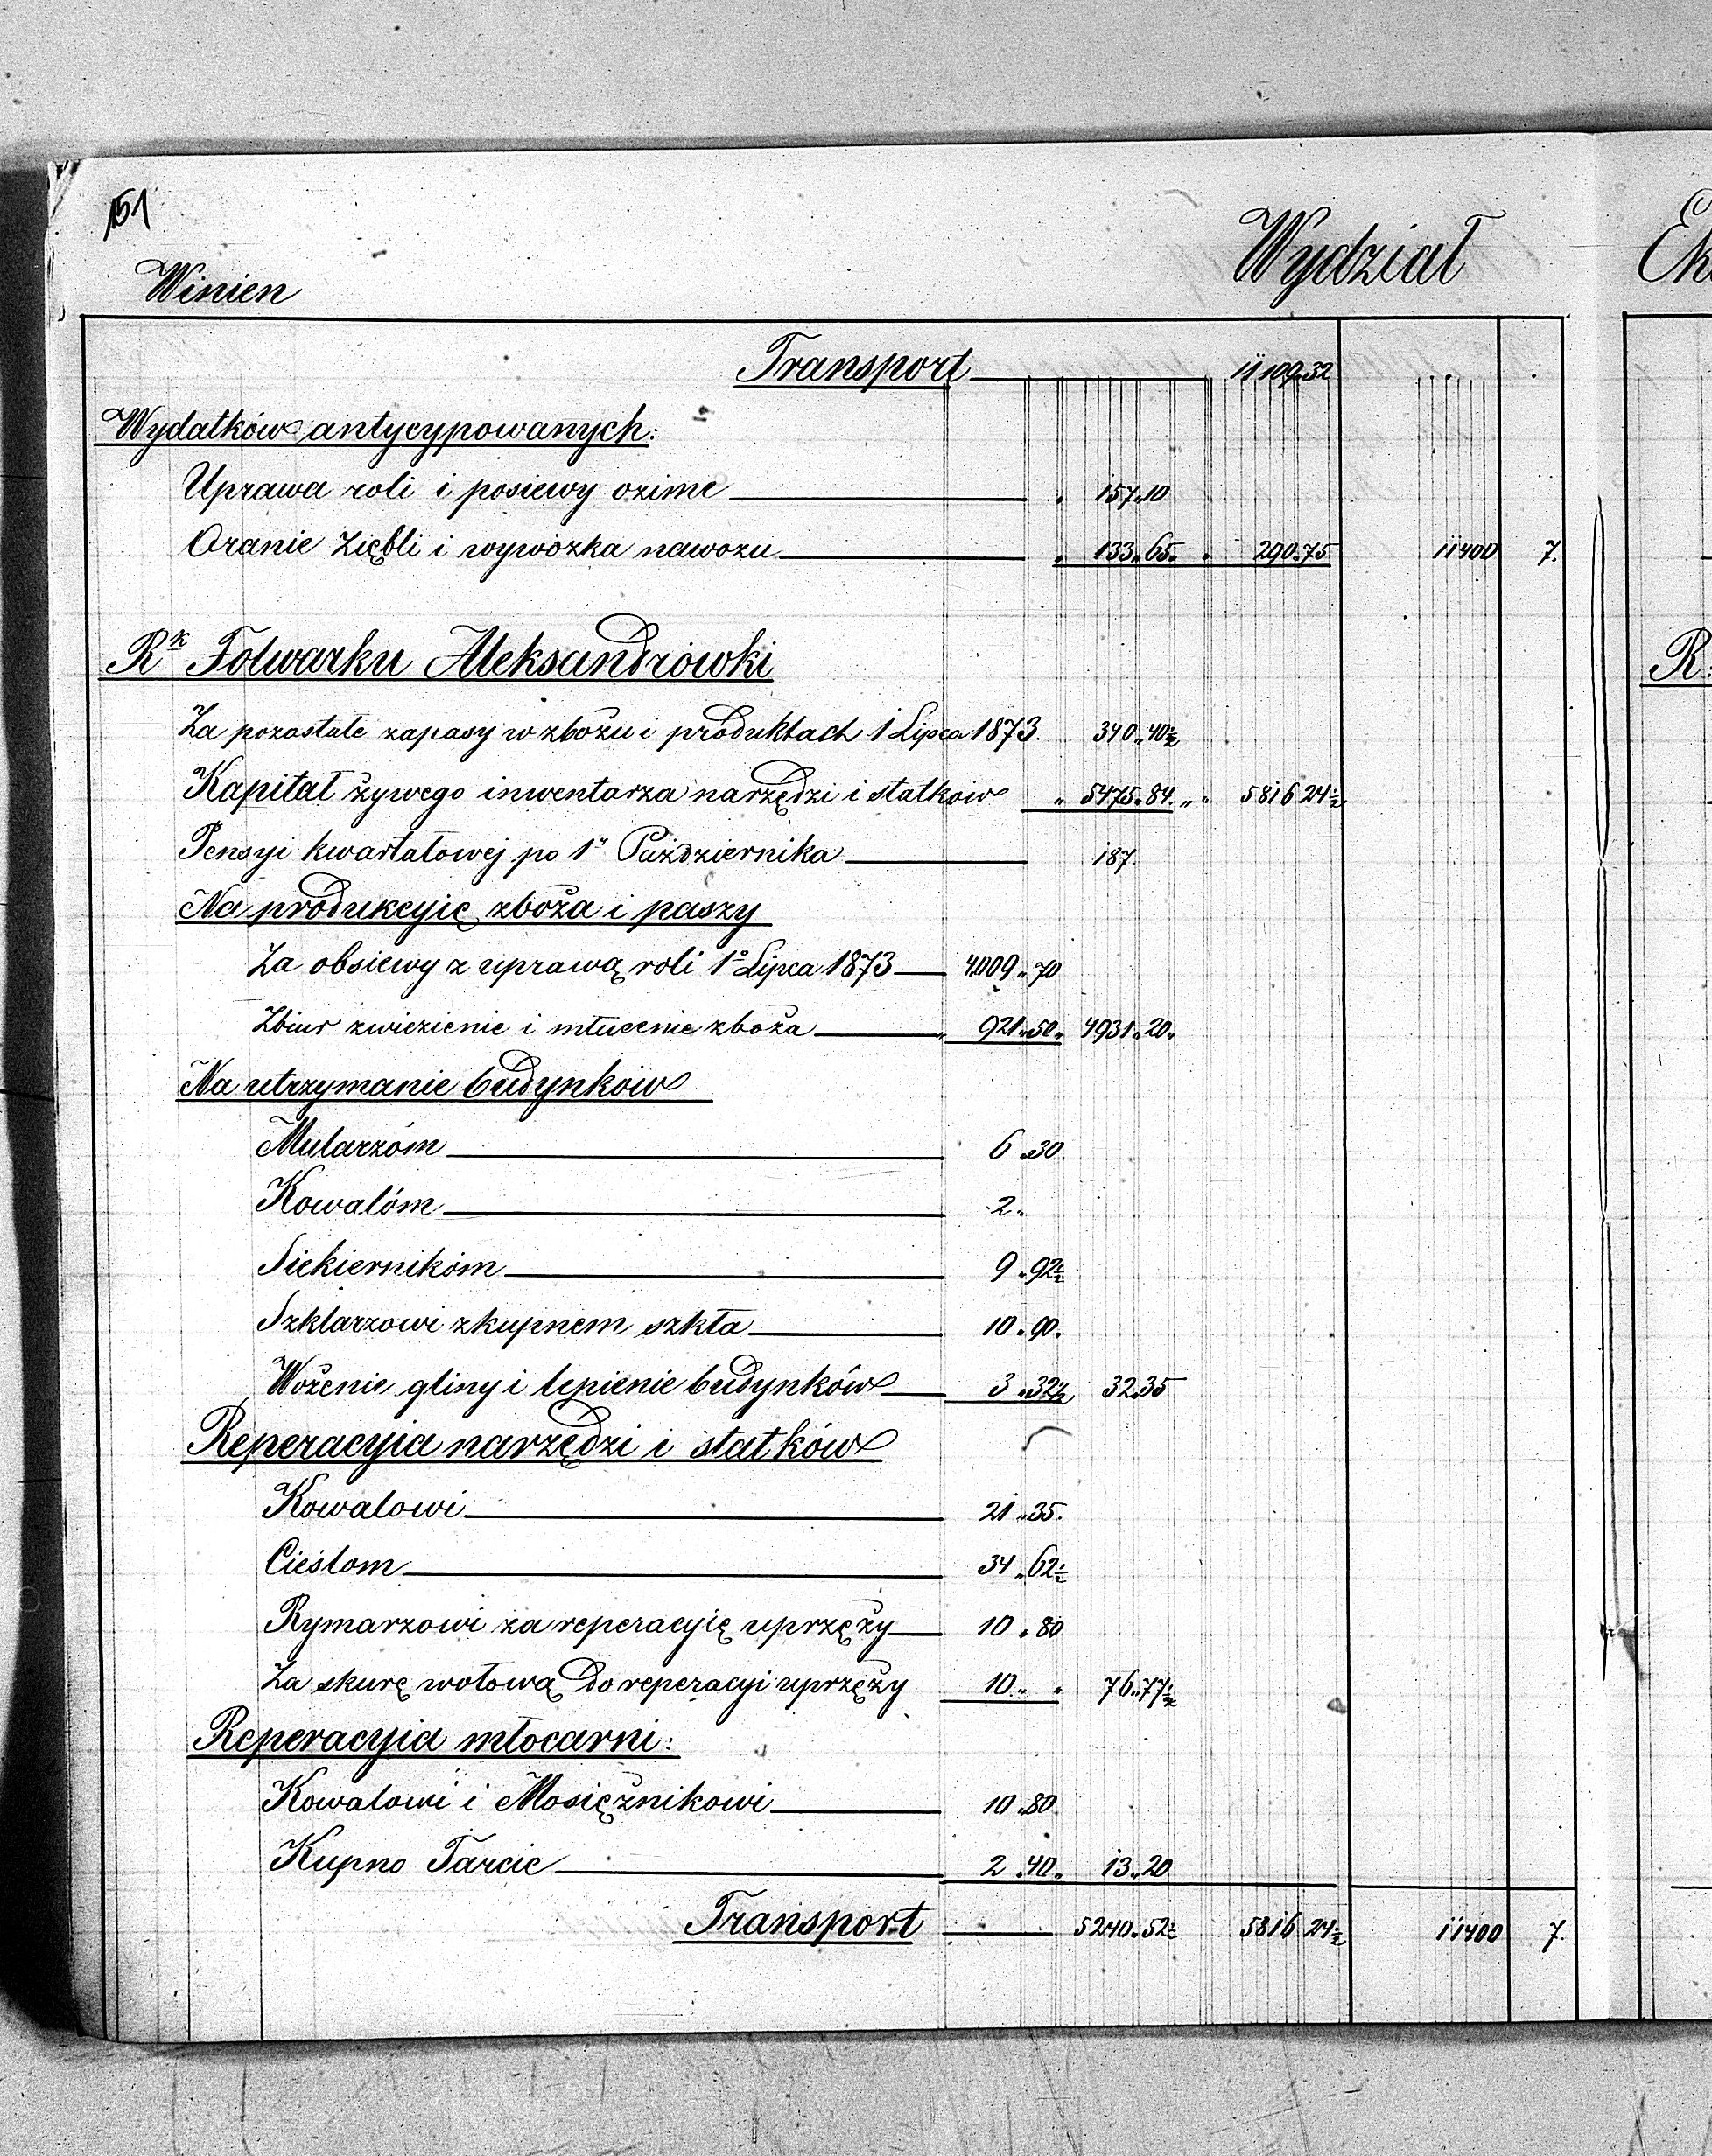 151
Winien
Wydział
Transport 11109.32
Wydatków antycypowanych:
Uprawa roli i posiewy ozime " 157.10
Oranie Ziębli i wywózka nawozu " 133.65. " 290.75 11400 7.
Rk Folwarku Aleksandrówki
Za pozostałe zapasy w zbożu i produktach 1 Lipca 1873. 340.40½
Kapitał żywego inwentarza narzędzi i statków " 5475.84. " " 5816 24½
Pensyi kwartałowej po 1" Października 187.
Na produkcyię zboża i paszy
Za obsiewy z uprawą roli 1o Lipca 1873 4009.70
Zbiur zwiezienie i młucenie zboża " 921.50. 4931.20.
Na utrzymanie budynków
Mularzóm 6.30
Kowalóm 2.
Siekiernikóm 9.92½
Szklarzowi z kupnem szkła 10.90.
Wożenie gliny i lepienie budynków 3.32½ 32.35
Reperacyia narzędzi i statków
Kowalowi 21.35.
Cieślom 34.62½
Rymarzowi za reperacyię uprzęży 10.80
Za skurę wołową do reperacyi uprzęży 10. " " 76.77½
Reperacyia młocarni:
Kowalowi i Mosiężnikowi 10.80.
Kupno Tarcic 2.40. 13.20
Transport 5240.52½ 5816 24½ 11400 7.